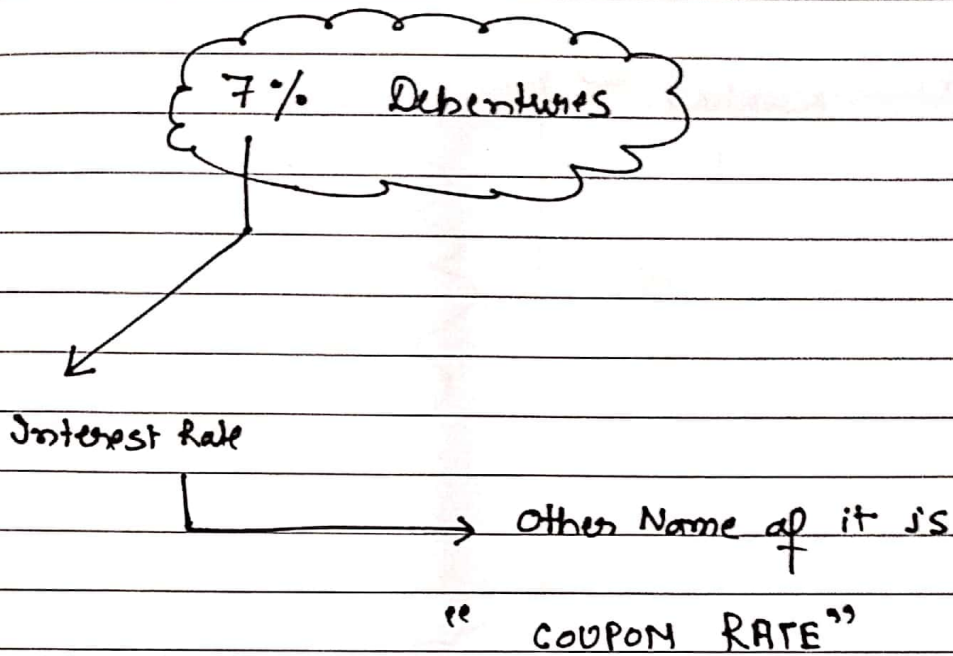 7% Debentures
Interest Rate
Other Name of it is
" COUPON RATE"